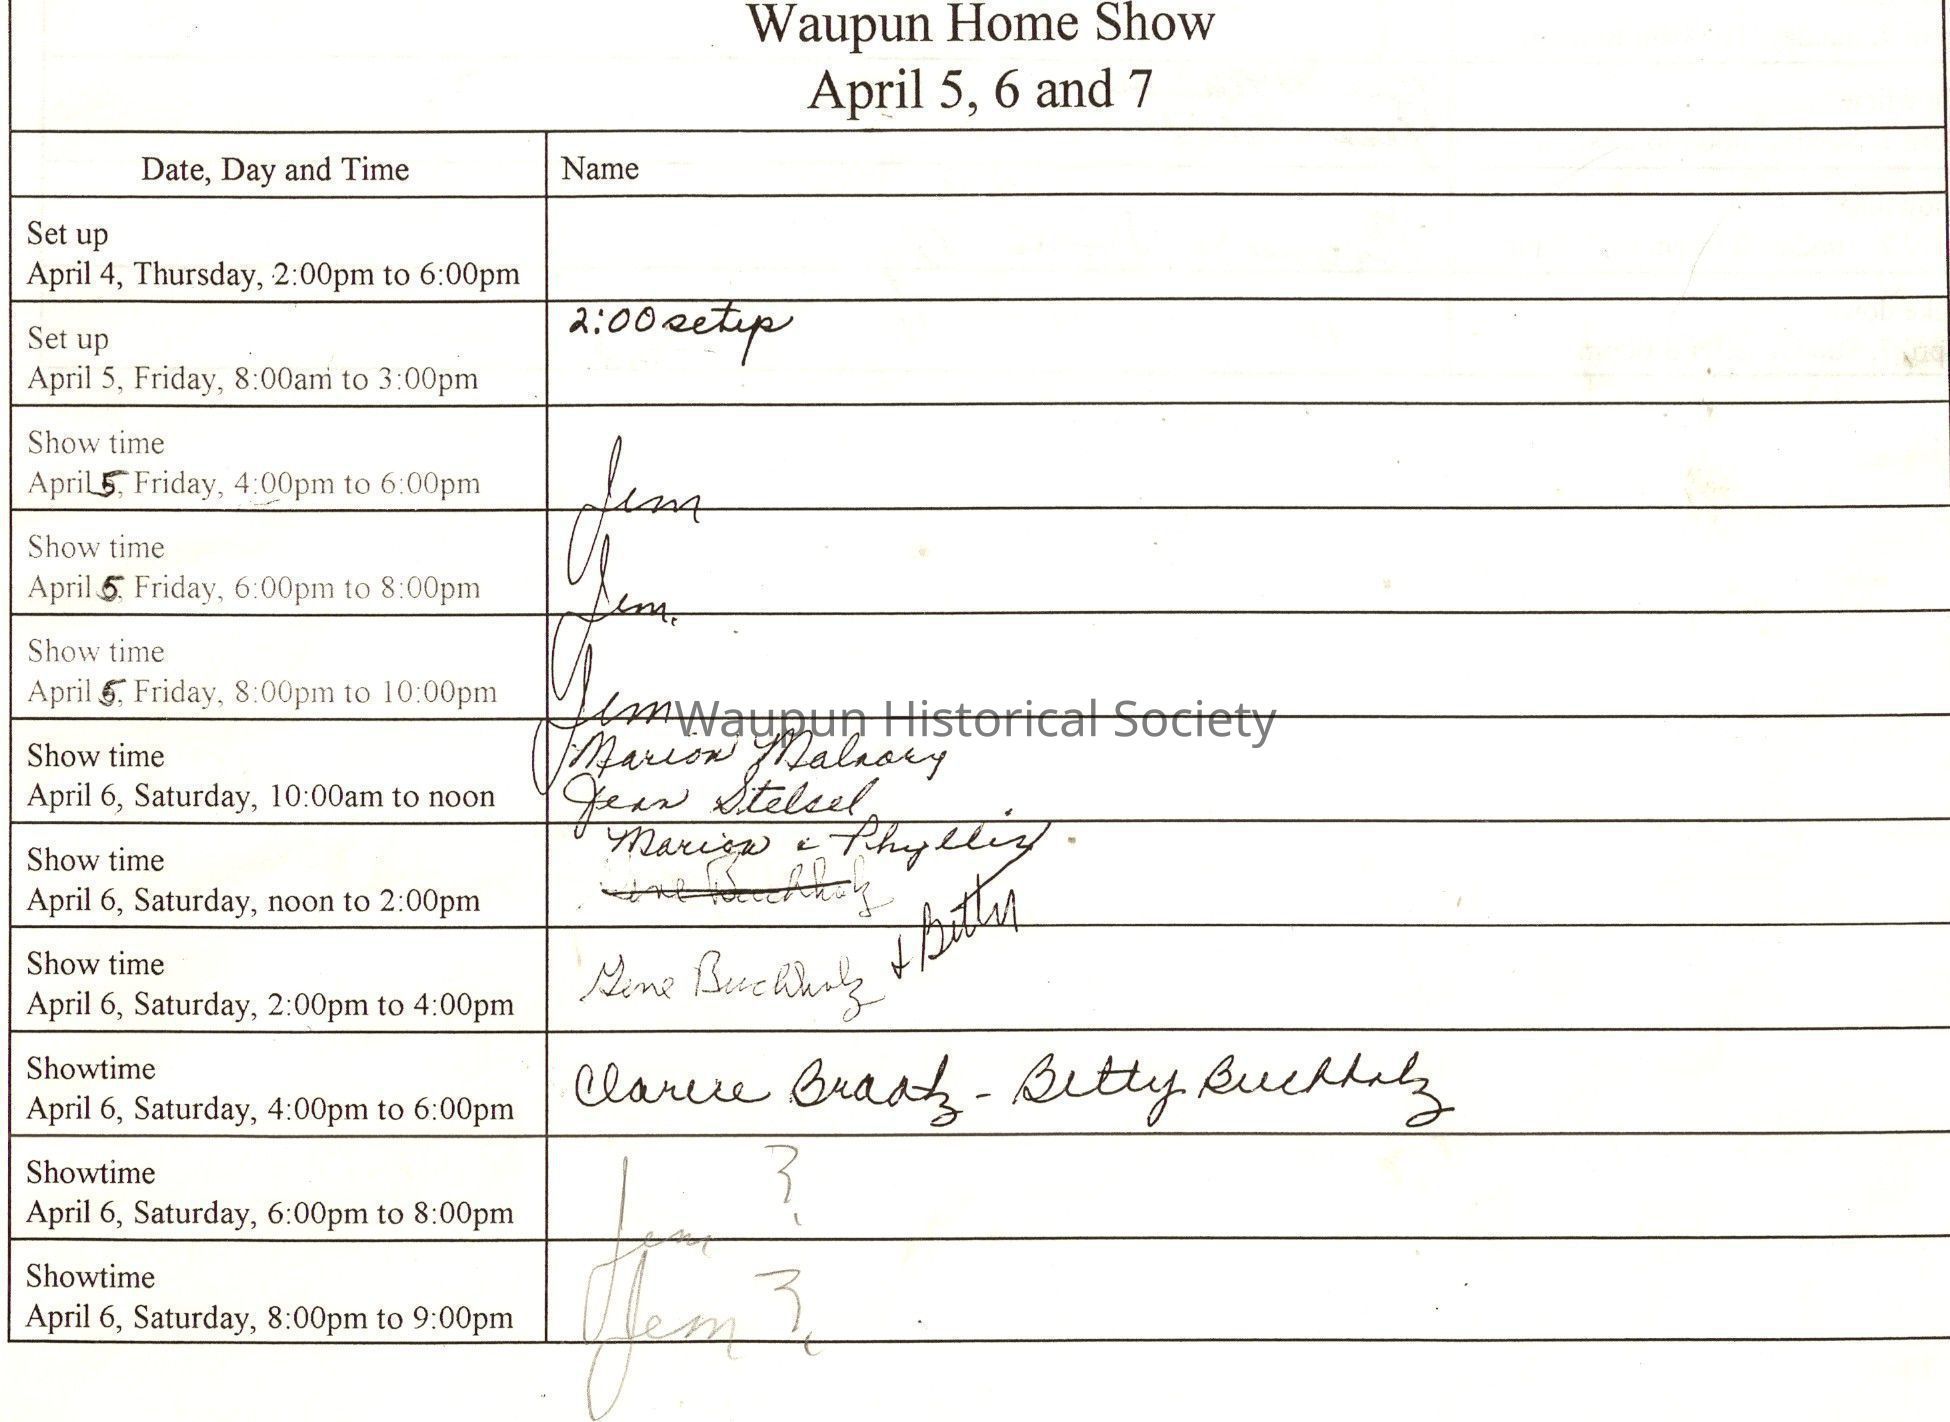 Waupun Home Show
April 5, 6 and 7
Date, Day and Time Name
Set up
April 4, Thursday, 2:00pm to 6:00pm
Set up 2:00 setup
April 5, Friday, 8:00am to 3:00pm
Show time
April 5, Friday, 4:00pm to 6:00pm Jem
Show time
April 5, Friday, 6:00pm to 8:00pm Jem.
Show time
April 5, Friday, 8:00pm to 10:00pm Jem
Waupun Historical Society
Show time Marion Malnory
April 6, Saturday, 10:00am to noon Jean Stelsel
Show time Marion & Phyllis
April 6, Saturday, noon to 2:00pm Gene Buchholz
Show time
April 6, Saturday, 2:00pm to 4:00pm Gene Buchholz + Betty
Showtime
April 6, Saturday, 4:00pm to 6:00pm Clarice Braatz - Betty Buchholz
Showtime
April 6, Saturday, 6:00pm to 8:00pm Jem ?
Showtime
April 6, Saturday, 8:00pm to 9:00pm Jem ?